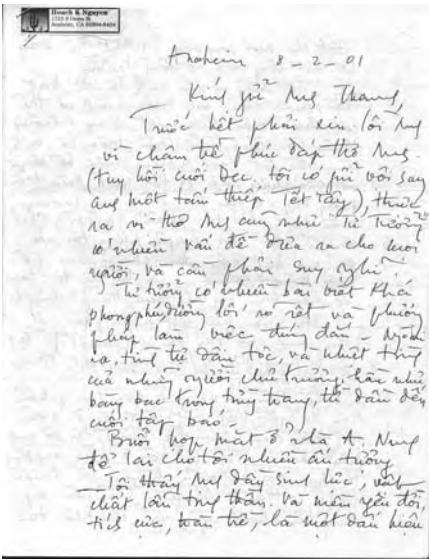 Hoach & Nguyen
Anaheim, CA
Anaheim 8-2-01
Kính gửi Ang Thang,
Trước hết phải xin lỗi Ang
vì chậm trễ phúc đáp thơ Ang.
(tuy hồi cuối Dec. tôi có gửi vội sang
Ang một tấm thiếp Tết Tây), thực
ra vì thơ Ang cũng như Tư Tưởng
có nhiều vấn đề đưa ra cho mọi
người, và cần phải suy nghĩ.
Tư tưởng có nhiều bài viết khá
phong phú, đường lối rõ rệt và phương
pháp làm việc đúng đắn - Ngoài
ra, tình tự dân tộc, và nhiệt tình
của những người chủ trương, hầu như
bàng bạc trong từng trang, từ đầu đến
cuối tập báo.
Buổi họp mặt ở nhà A.
để lại cho tôi nhiều ấn tượng
Tôi thấy Ang đầy sinh lực, vật
chất lẫn tinh thần. Và niềm yêu đời,
tích cực, tràn trề, là một dấu hiệu